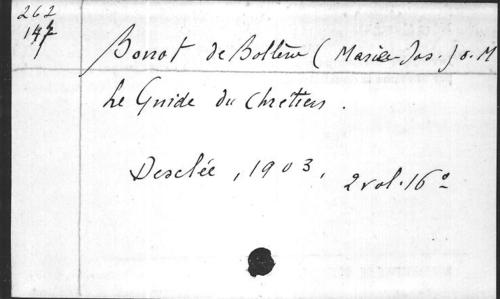 262
147
Bonnot de Bollène (Marie-Jos.) o. M
Le Guide du chrétien.
Desclée, 1903, 2 vol. 16º